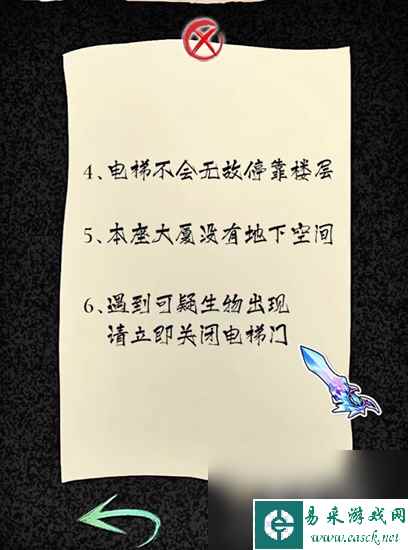 4、电梯不会无故停靠楼层
5、本座大厦没有地下空间
6、遇到可疑生物出现
请立即关闭电梯门
易采游戏网
www.easck.net